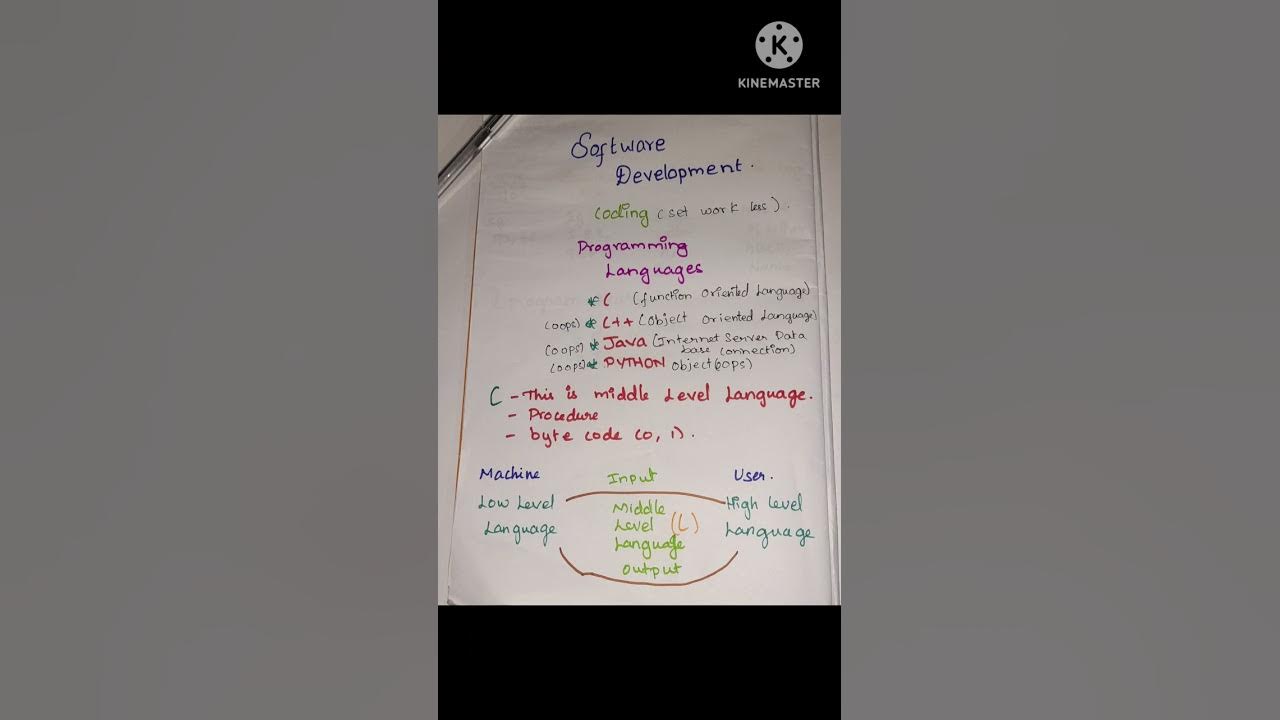 KINEMASTER
Software
Development.
Coding (set work less).
Programming
Languages
* C (function oriented Language)
(oops) * C++ (Object oriented Language)
(oops) * JAVA (Internet Server Data
base Connection)
(oops) * PYTHON object(oops)
C - This is middle Level Language.
- Procedure
- byte code (0, 1).
Machine Input User.
Low Level Middle High Level
Language Level (C) Language
Language
output